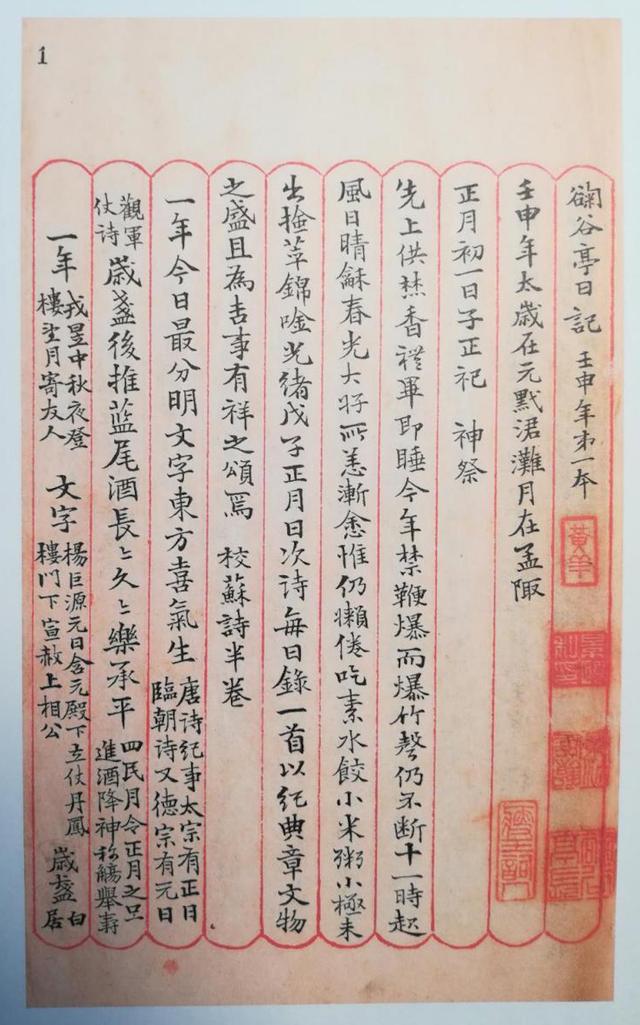 1
谷亭日記 壬申年第一本 黃羊
壬申年太歲在元默涒灘月在孟陬
正月初一日子正祀 神祭
先上供焚香禮畢即睡今年禁鞭爆而爆竹聲仍不斷十一時起
風日晴龢春光大好所恙漸愈惟仍懶倦吃素水餃小米粥小極未
出撿萃錦唫光緒戊子正月日次詩每日錄一首以紀典章文物
之盛且為吉事有祥之頌焉 校蘇詩半卷
一年今日最分明文字東方喜氣生 唐詩紀事太宗有正日臨朝詩又德宗有元日
觀軍仗詩 歲盞後推藍尾酒長〻久〻樂承平 四民月令正月之旦進酒降神称觴舉壽
一年 戎昱中秋夜澄樓望月寄友人 文字 楊巨源元日含元殿下立仗丹鳳樓門下宣赦上相公 歲盞 白居